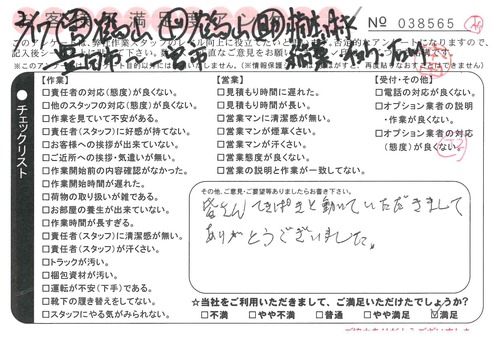 No 038565
チェックリスト
【作業】
□責任者の対応(態度)が良くない。
□他のスタッフの対応(態度)が良くない。
□作業を見ていて不安がある。
□責任者(スタッフ)に好感が持てない。
□お客様への挨拶が出来ていない。
□ご近所への挨拶・気遣いが無い。
□作業開始前の内容確認がなかった。
□作業開始時間が遅れた。
□荷物の取り扱いが雑である。
□お部屋の養生が出来ていない。
□作業時間が長すぎる。
□責任者(スタッフ)に清潔感が無い。
□責任者(スタッフ)が汗くさい。
□トラックが汚い。
□梱包資材が汚い。
□運転が不安(下手)である。
□靴下の履き替えをしてない。
□スタッフにやる気がみられない。
【営業】
□見積もり時間に遅れた。
□見積もり時間が長い。
□営業マンに清潔感が無い。
□営業マンが煙草くさい。
□営業マンが汗くさい。
□営業態度が良くない。
□営業の説明と作業が一致してない。
【受付・その他】
□電話の対応が良くない。
□オプション業者の説明
・作業が良くない。
□オプション業者の対応
(態度)が良くない。
その他、ご意見・ご要望等ありましたらお書き下さい。
皆さん てきぱきと動いていただきまして
ありがとうございました。
☆当社をご利用いただきまして、ご満足いただけたでしょうか?
□不満 □やや不満 □普通 □やや満足 ☑満足